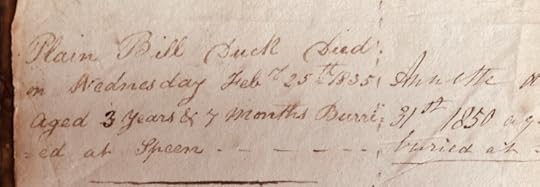 Plain Bill Duck Died
on Wednesday Feby 25th 1835
Aged 3 Years & 7 Months Burri
=ed at Speen
Annette
31st 1850 ag
buried at